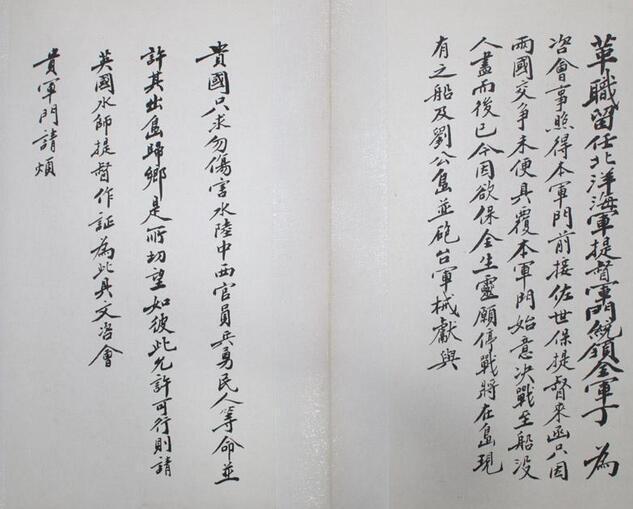 革職留任北洋海軍提督軍門統領全軍丁 為
咨會事照得本軍門前接佐世保提督來函只因
兩國交爭未便具覆本軍門始意決戰至船沒
人盡而後已今因欲保全生靈願停戰將在島現
有之船及劉公島並砲台軍械獻與
貴國只求勿傷害水陸中西官員兵勇民人等命並
許其出島歸鄉是所切望如彼此允許可行則請
英國水師提督作証為此具文咨會
貴軍門請煩